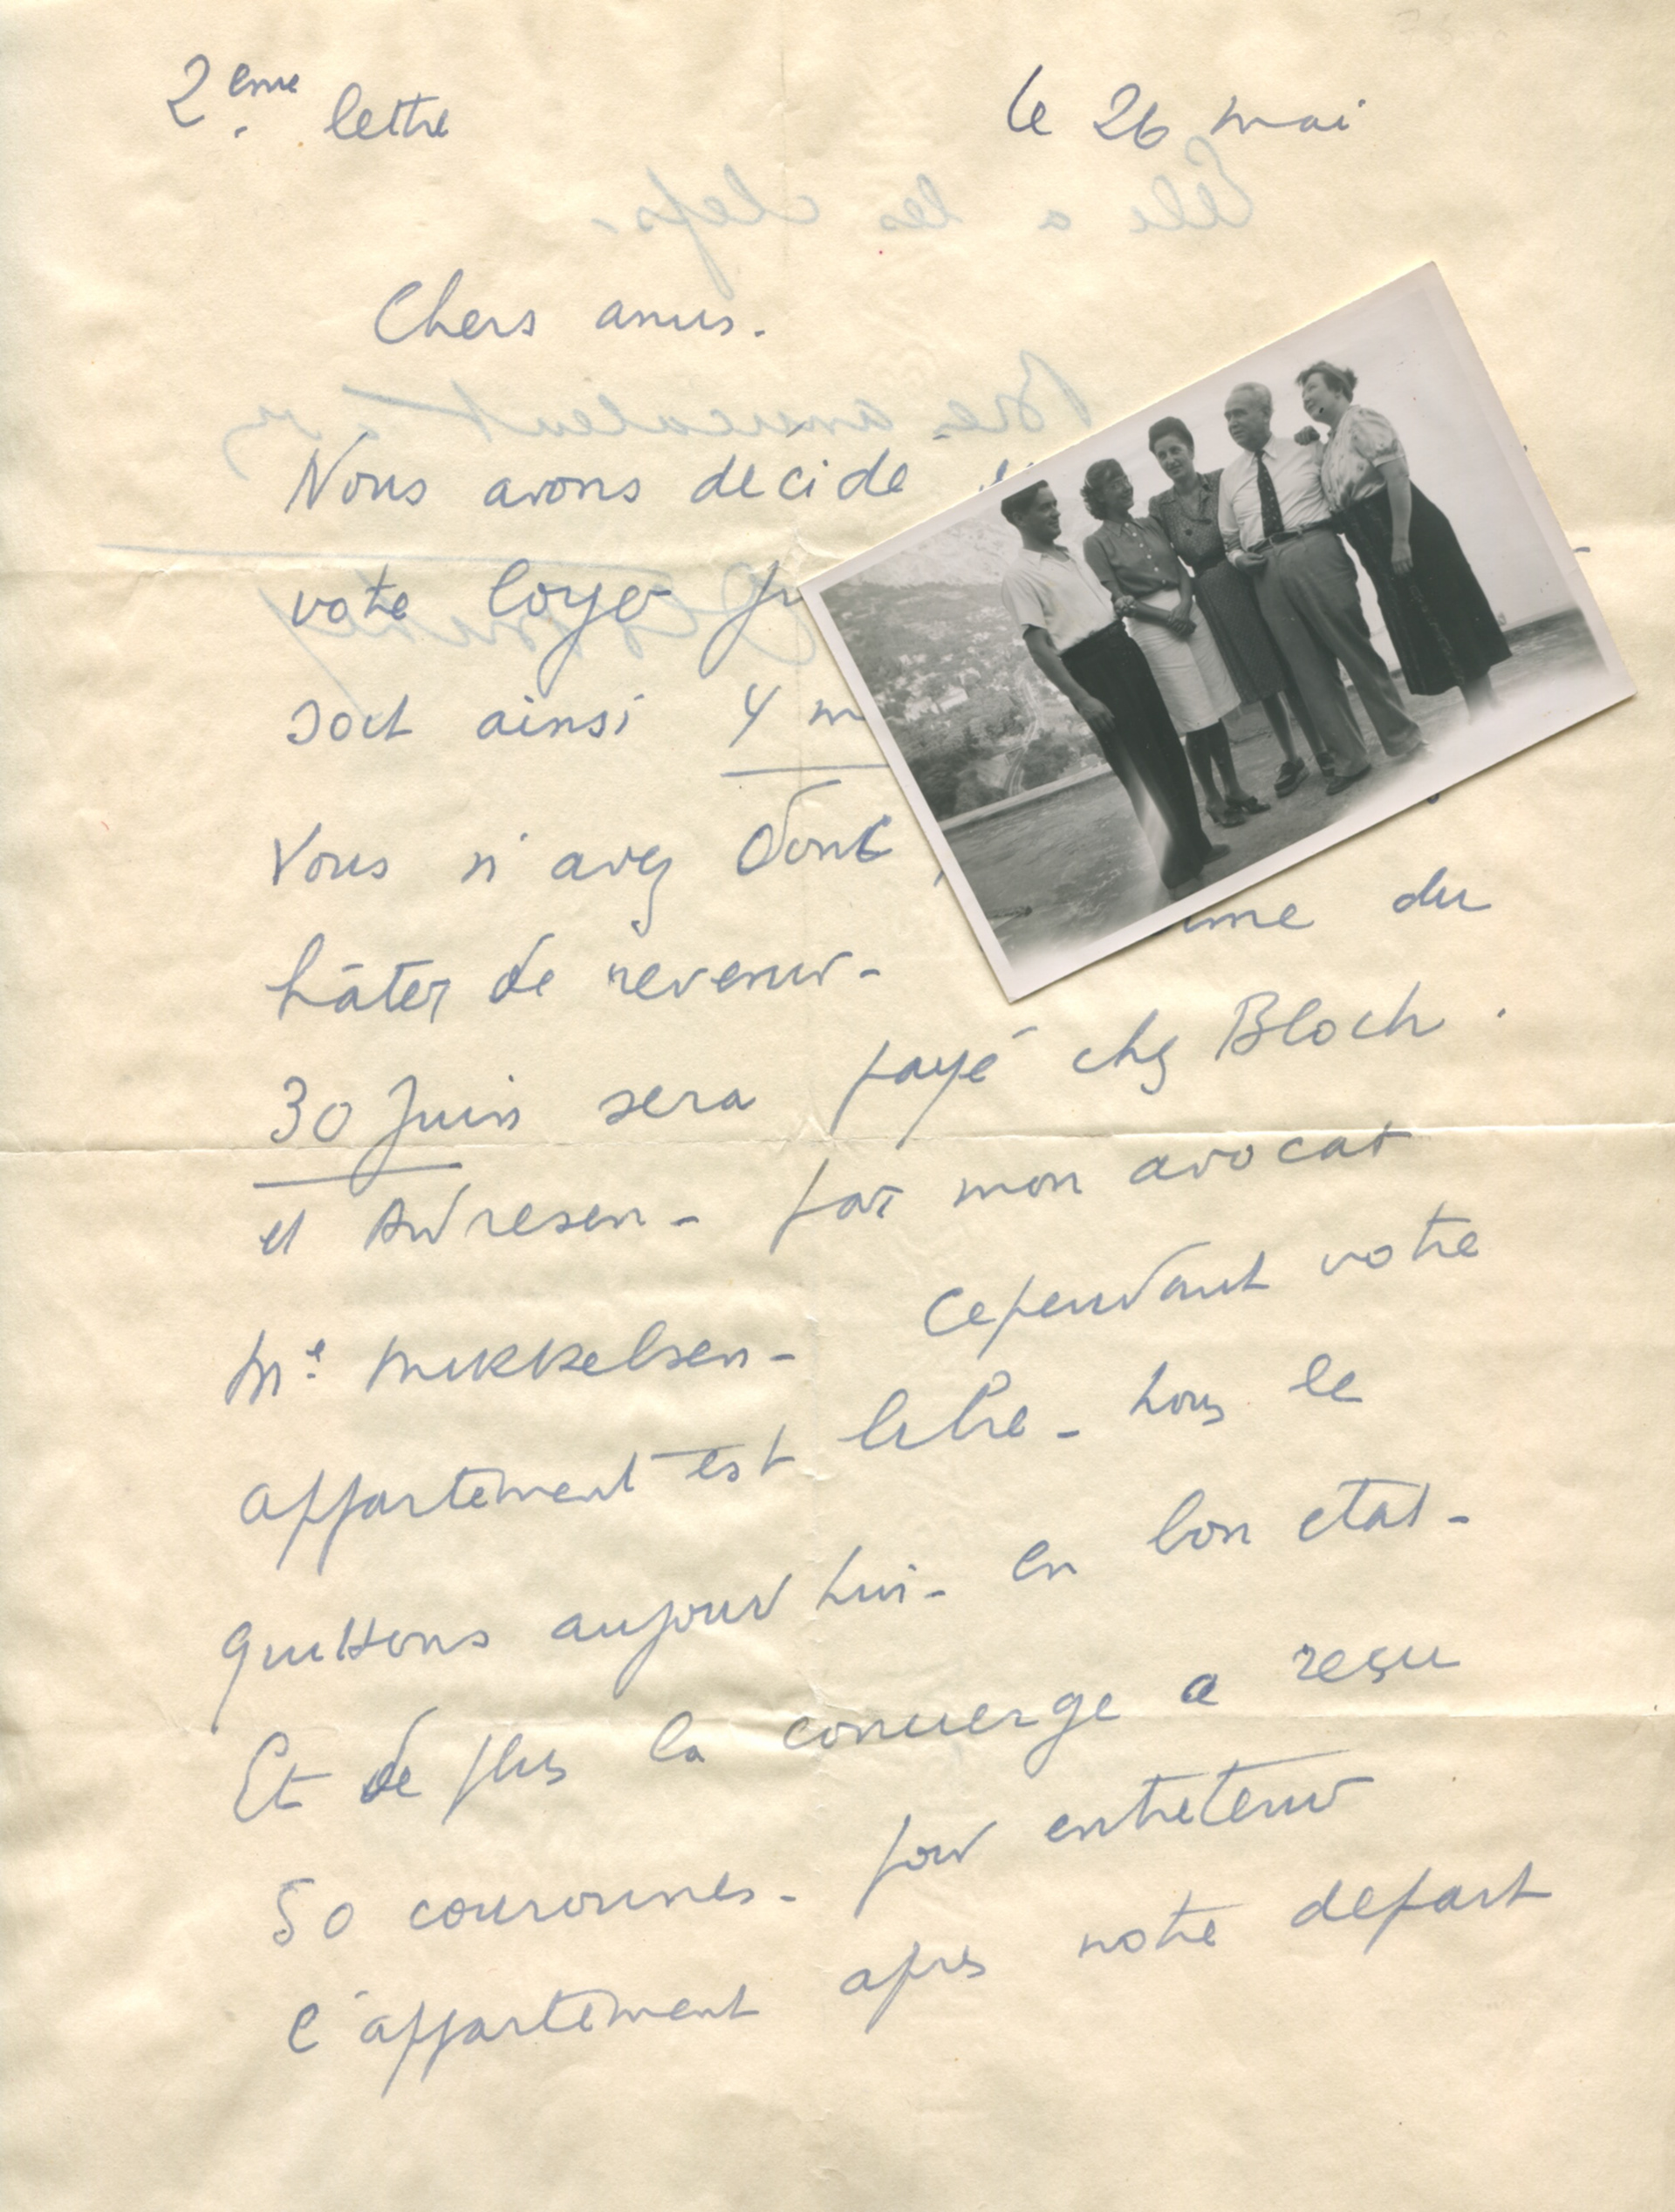 2ème lettre le 26 mai
Elle a les clefs.
Chers amis.
Bien amicalement à vs
Nous avons décidé
votre loyer
soit ainsi 4
Vous n'avez donc
hâter de revenir - du
30 Juin sera payé chez Bloch.
et Andresen - par mon avocat
Me Mikkelsen - Cependant votre
appartement est libre - nous le
quittons aujourd'hui - en bon etat -
Et de plus la concierge a reçu
50 couronnes - pour entretenir
l'appartement apres notre depart